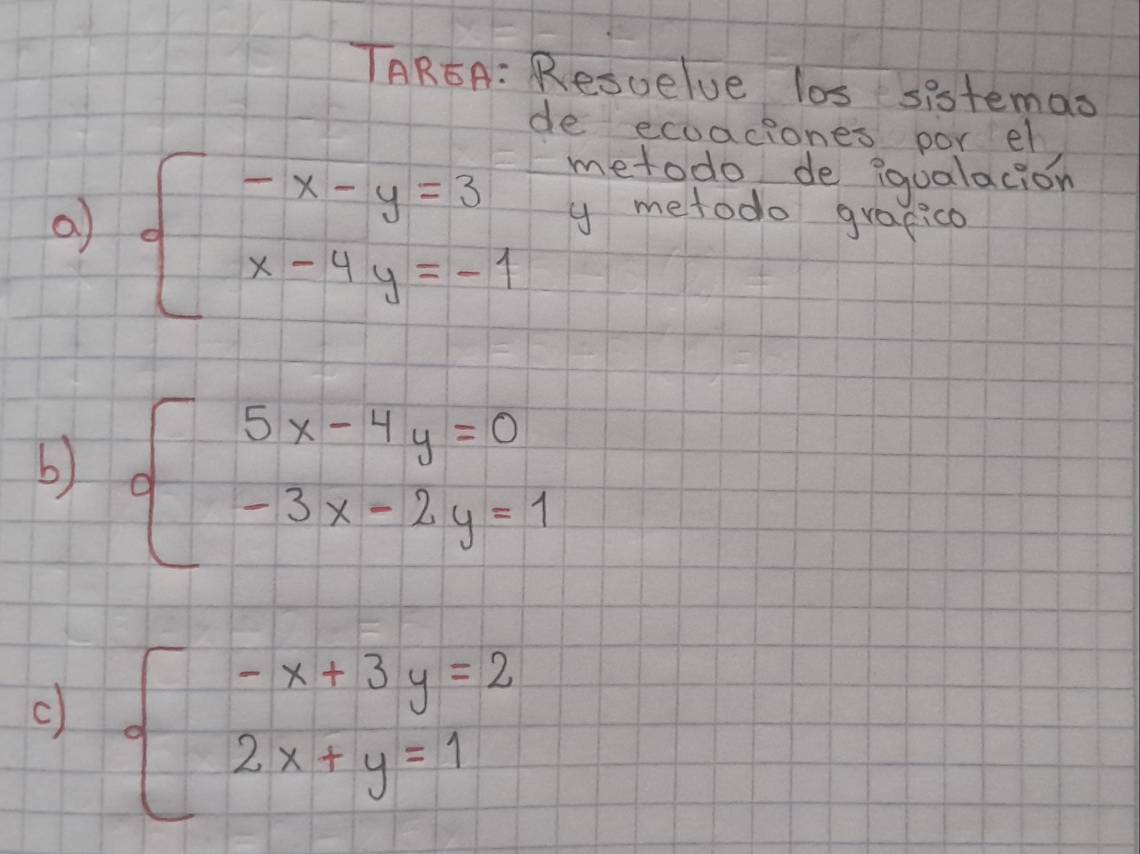 TAREA: Resuelve los sistemas
de ecuaciones por el
metodo de igualación
y metodo grafico
a) - x - y = 3
x - 4y = - 1
b) 5x - 4y = 0
- 3x - 2y = 1
c) - x + 3y = 2
2x + y = 1